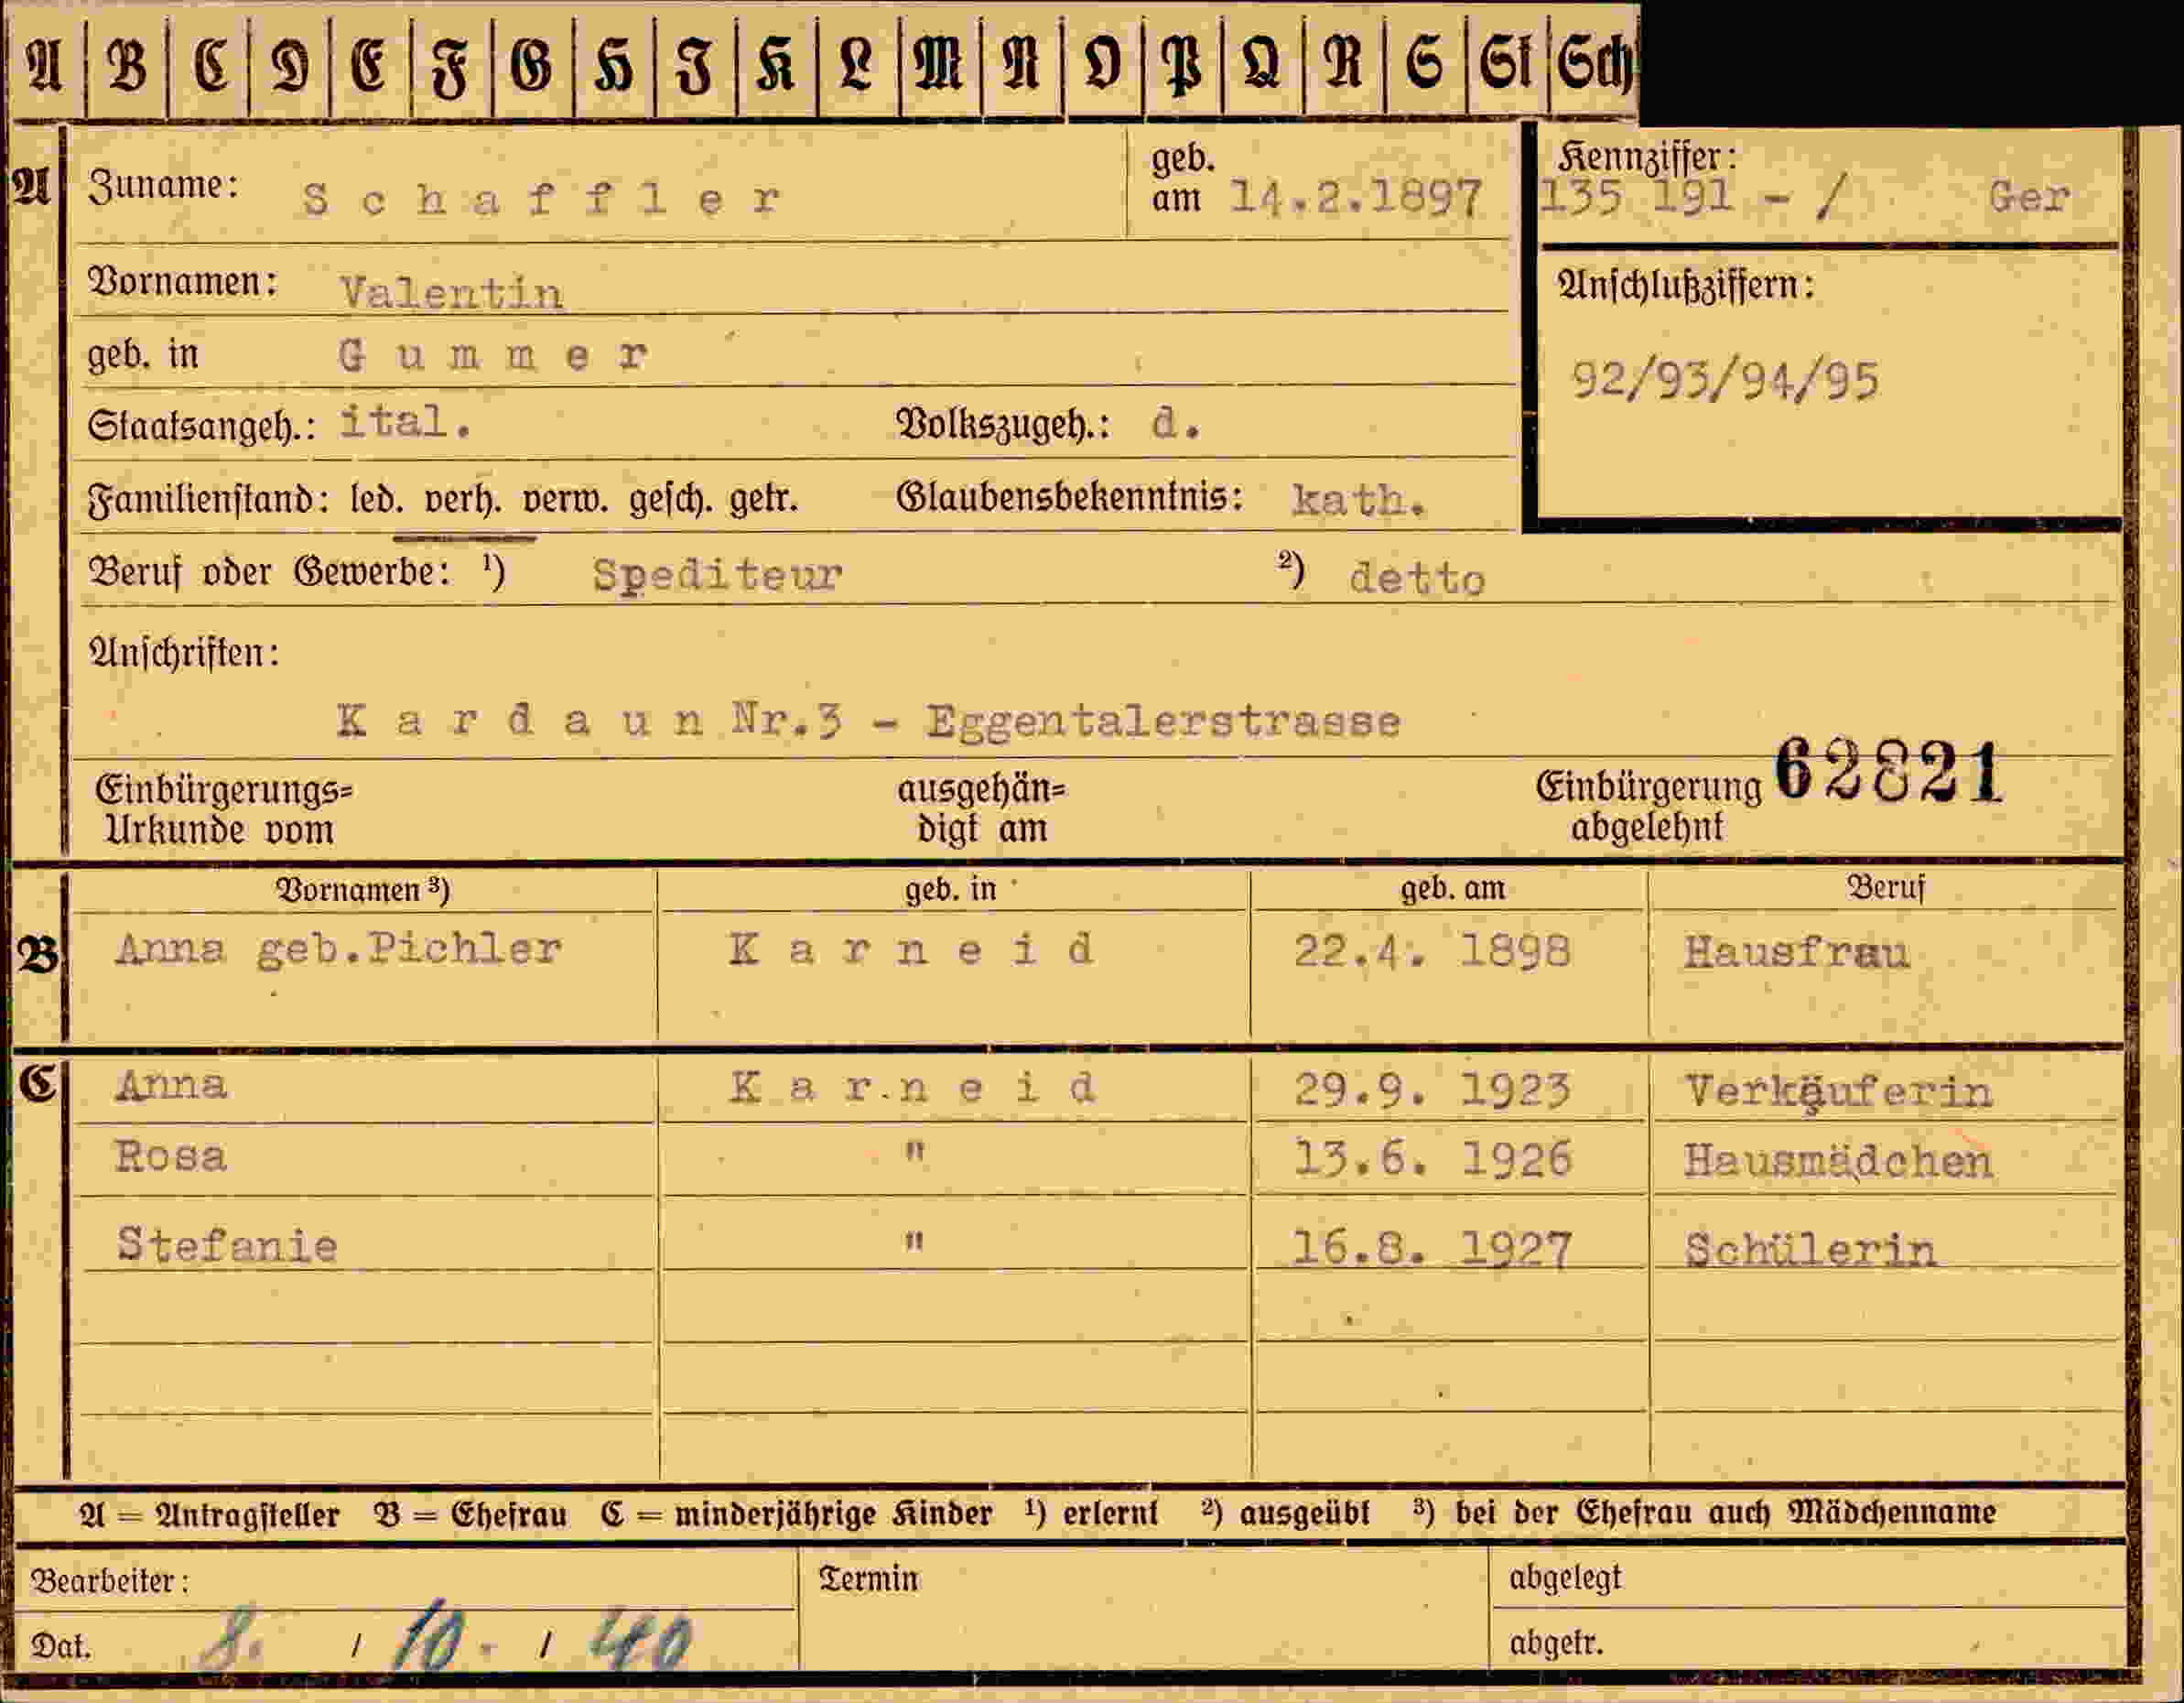 A B C D E F G H I K L M N O P Q R S St Sch
A Zuname: Schaffler geb. am 14.2.1897 Kennziffer: 135 191 - / Ger
Vornamen: Valentin Anschlußziffern:
geb. in Gummer 92/93/94/95
Staatsangeh.: ital. Volkszugeh.: d.
Familienstand: led. verh. verw. gesch. getr. Glaubensbekenntnis: kath.
Beruf oder Gewerbe: ¹) Spediteur ²) detto
Anschriften:
Kardaun Nr.3 - Eggentalerstrasse
Einbürgerungs= ausgehän= Einbürgerung 62821
Urkunde vom digt am abgelehnt
Vornamen ³) geb. in geb. am Beruf
B Anna geb.Pichler Karneid 22.4. 1898 Hausfrau
C Anna Karneid 29.9. 1923 Verkäuferin
Rosa " 13.6. 1926 Hausmädchen
Stefanie " 16.8. 1927 Schülerin
A = Antragsteller B = Ehefrau C = minderjährige Kinder ¹) erlernt ²) ausgeübt ³) bei der Ehefrau auch Mädchenname
Bearbeiter: Termin abgelegt
Dat. 8. / 10. / 40 abgetr.